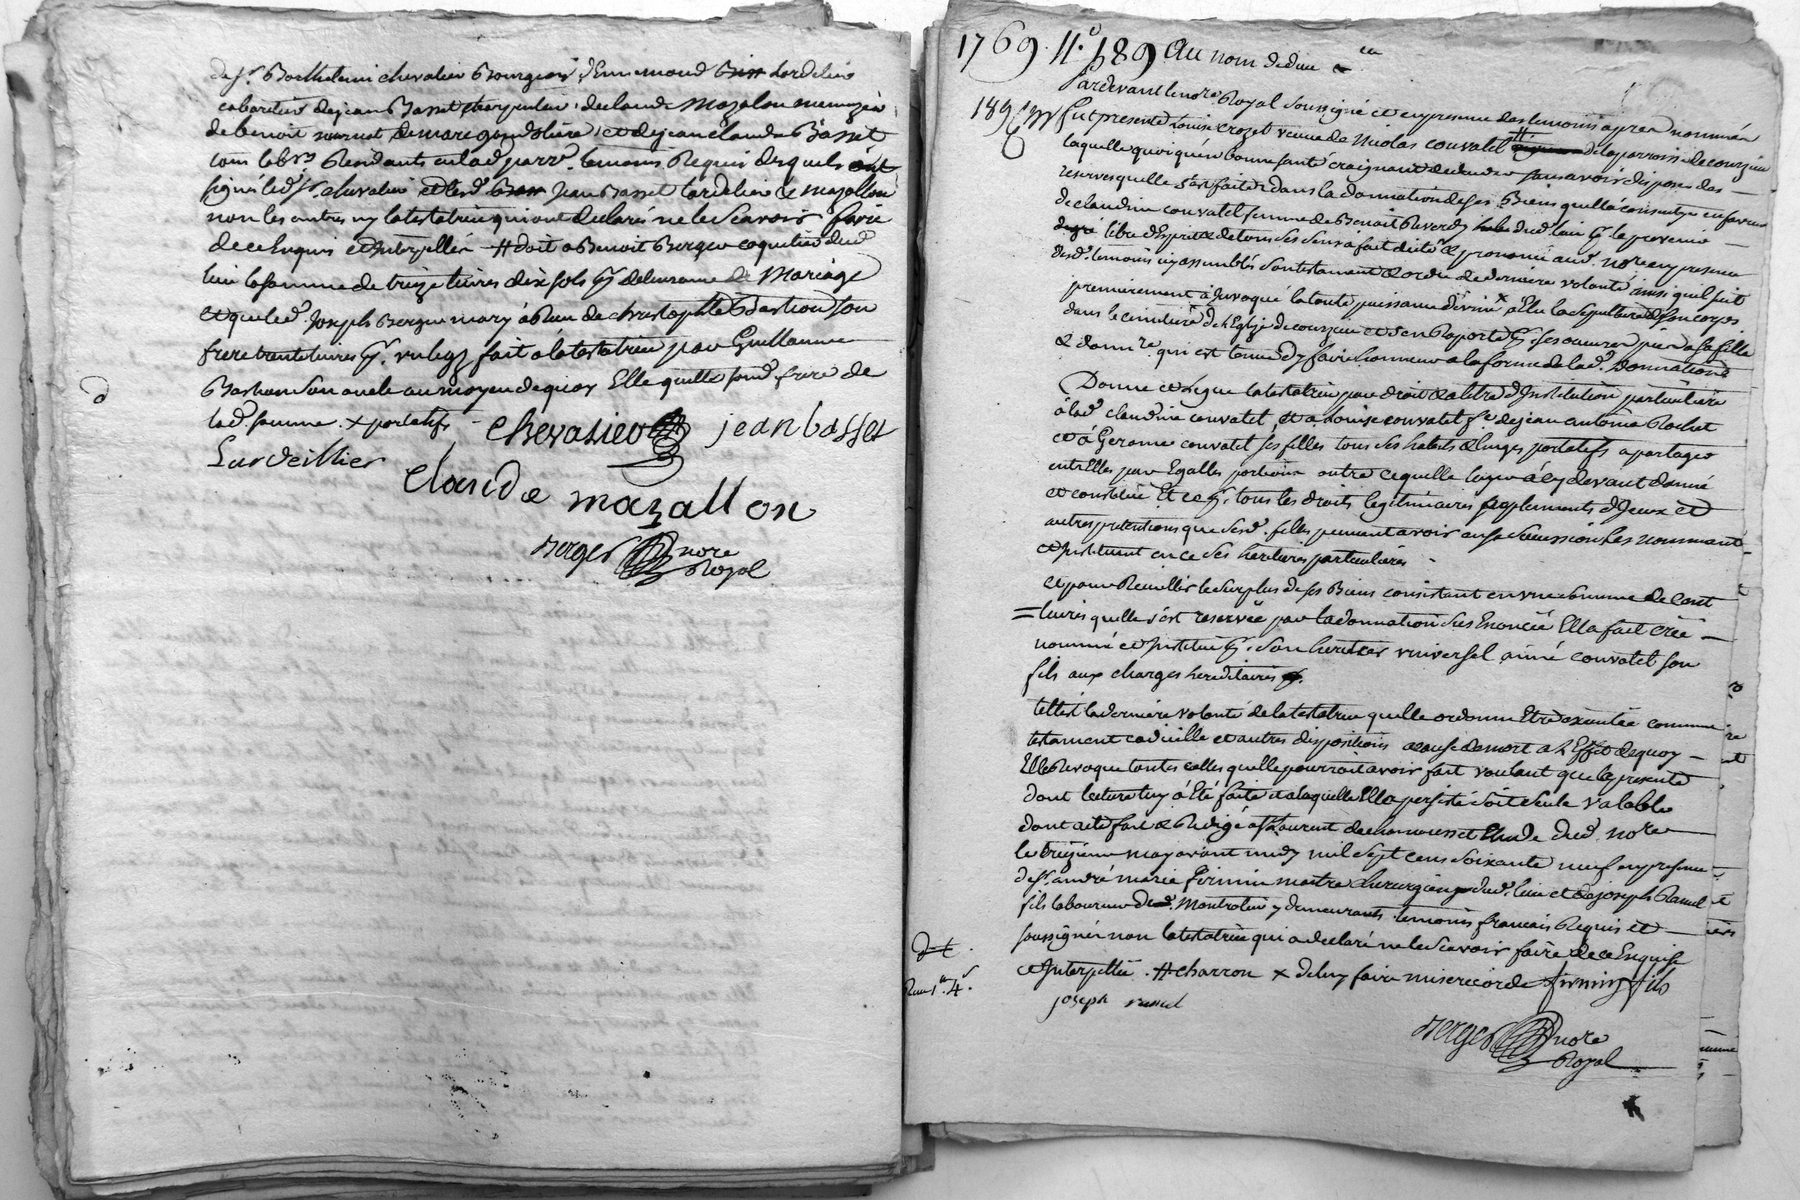 de Sr. Barthelemi chevalier Bourgeois, d'Ennemond tardelier
cabaretier de jean Basset charpentier, de claude Mazalon menuzier
de benoit et de jean claude Basset
tous tesmoins Requis desquels ont
signé led. Sr. chevalier jean Basset tardelier & mazallon
non les autres ny la testatrice qui ont declaré ne le scavoir faire
de ce Enquis et Interpellés # doit a Benoit Berger coquetier dud.
lieu la somme de treize livres dix sols de mariage
et que led. joseph Berger mary à Reçu de christophle Bastion son
frere trente livres fait à la testatrice par Guillaume
Bastion son oncle au moyen de quoy Elle quitte sond. frere de
lad. somme. x portatifs
chevalier jean basset
Lardellier
claude mazallon
Berger nore
Royal
1769. 189 Au nom de dieu
Pardevant le nore. Royal soussigné et en presence des temoins apres nommés
189 fut presente Louise crozet veuve de Nicolas couvatet # de la parroisse de courzieu
laquelle quoiqu'en bonne santé craignant de deceder sans avoir disposé des
reserves quelle s'est faite dans la donnation de ses Biens quelle à consentye en faveur
de claudine couvatet femme de Benoit Reverdy dud. lieu le provenir
libre d'Esprit & de tous ses sens à fait dicté & prononcé aud. nore en presence
desd. temoins icy assemblés son testament & ordre de derniere volonté ainsi quil suit
premierement à Invoqué la toute puissance divine x Elu la sepulture de son corps
dans le cimitiere de l'Eglise de courzieu et s'en Raporte ses œuvres pies a sa fille
& donnre. qui est tenue d'y faire honneur a la forme de lad. Donnation
Donne et Legue la testatrice par droit & a titre d'Institution particuliere
à lad. claudine couvatet, et a Louise couvatet fe. de jean antoine Rochet
et à Gerome couvatet ses filles tous ses habits & linges portatifs a partager
entr'Elles par Egalles portions outre ce quelle leur à cy devant donné
et constitué Et ce tous les droits legitimaires suplements d'Iceux et
autres pretentions que sesd. filles peuvent avoir en sa succession Les nommant
et Instituant en ce ses heritieres particulieres
et pour Recueillir le surplus de ses Biens consistant en une somme de cent
livres quelle s'est reservée par la donnation sus Enoncée Ella fait créé
nommé et Institué son heritier universel aimé couvatet son
fils aux charges hereditaires
telle est la derniere volonté de la testatrice quelle ordonne Etre executée comme
testament codicille et autres dispositions a cause de mort a l'Effet de quoy
Elle Revoque toutes celles quelle pourroit avoir fait voulant que la presente
dont lecture luy à Eté faite et a laquelle Ella persisté soit seule valable
dont acte fait & Redigé à St. Laurent de chamousset Etude dud. nore
le treizieme may avant midy mil sept cens soixante neuf en presence
de Sr. andré marie firmin maitre chirurgien dud. lieu et de joseph Ramel
fils laboureur de Montrotier y demeurants temoins francais Requis et
soussignés non la testatrice qui a declaré ne le scavoir faire de ce Enquise
et Interpellée. # charron x de luy faire misericorde firmin fils
joseph ramel
Berger nore
Royal